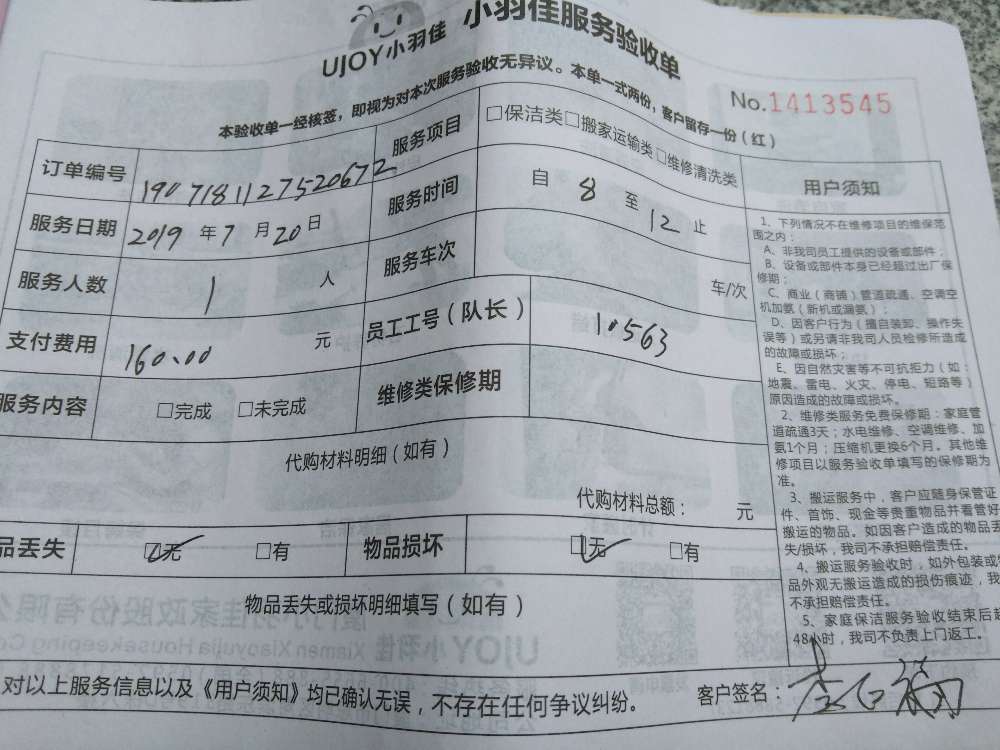 UJOY小羽佳 小羽佳服务验收单
本验收单一经核签，即视为对本次服务验收无异议。本单一式两份，客户留存一份（红）
No.1413545
订单编号 1907181127520672
服务项目 □保洁类□搬家运输类□维修清洗类
服务日期 2019 年 7 月 20 日
服务时间 自 8 至 12 止
服务人数 1 人
服务车次 车/次
支付费用 160.00 元
员工工号（队长） 10563
服务内容 □完成 □未完成
维修类保修期
代购材料明细（如有）
代购材料总额： 元
品丢失 □无 □有
物品损坏 □无 □有
物品丢失或损坏明细填写（如有）
用户须知
1、下列情况不在维修项目的维保范
围之内：
A、非我司员工提供的设备或部件；
B、设备或部件本身已经超过出厂保
修期；
C、商业（商铺）管道疏通、空调空
机加氨（新机或漏氨）；
D、因客户行为（擅自装卸、操作失
误等）或另请非我司人员检修所造成
的故障或损坏；
E、因自然灾害等不可抗拒力（如：
地震、雷电、火灾、停电、短路等）
原因造成的故障或损坏。
2、维修类服务免费保修期：家庭管
道疏通3天；水电维修、空调维修、加
氨1个月；压缩机更换6个月。其他维
修项目以服务验收单填写的保修期为
准。
3、搬运服务中，客户应随身保管证
件、首饰、现金等贵重物品并看管好
搬运的物品。如因客户造成的物品丢
失/损坏，我司不承担赔偿责任。
4、搬运服务验收时，如外包装或
品外观无搬运造成的损伤痕迹，我
不承担赔偿责任。
5、家庭保洁服务验收结束后超
48小时，我司不负责上门返工。
对以上服务信息以及《用户须知》均已确认无误，不存在任何争议纠纷。
客户签名：